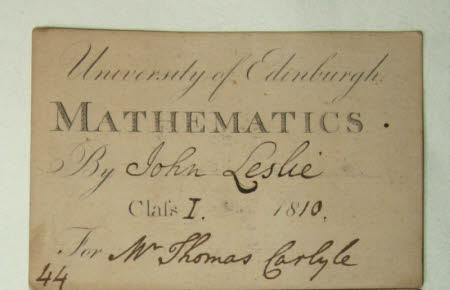 University of Edinburgh.
MATHEMATICS.
By John Leslie
Claſs I. 1810.
For Mr Thomas Carlyle
44